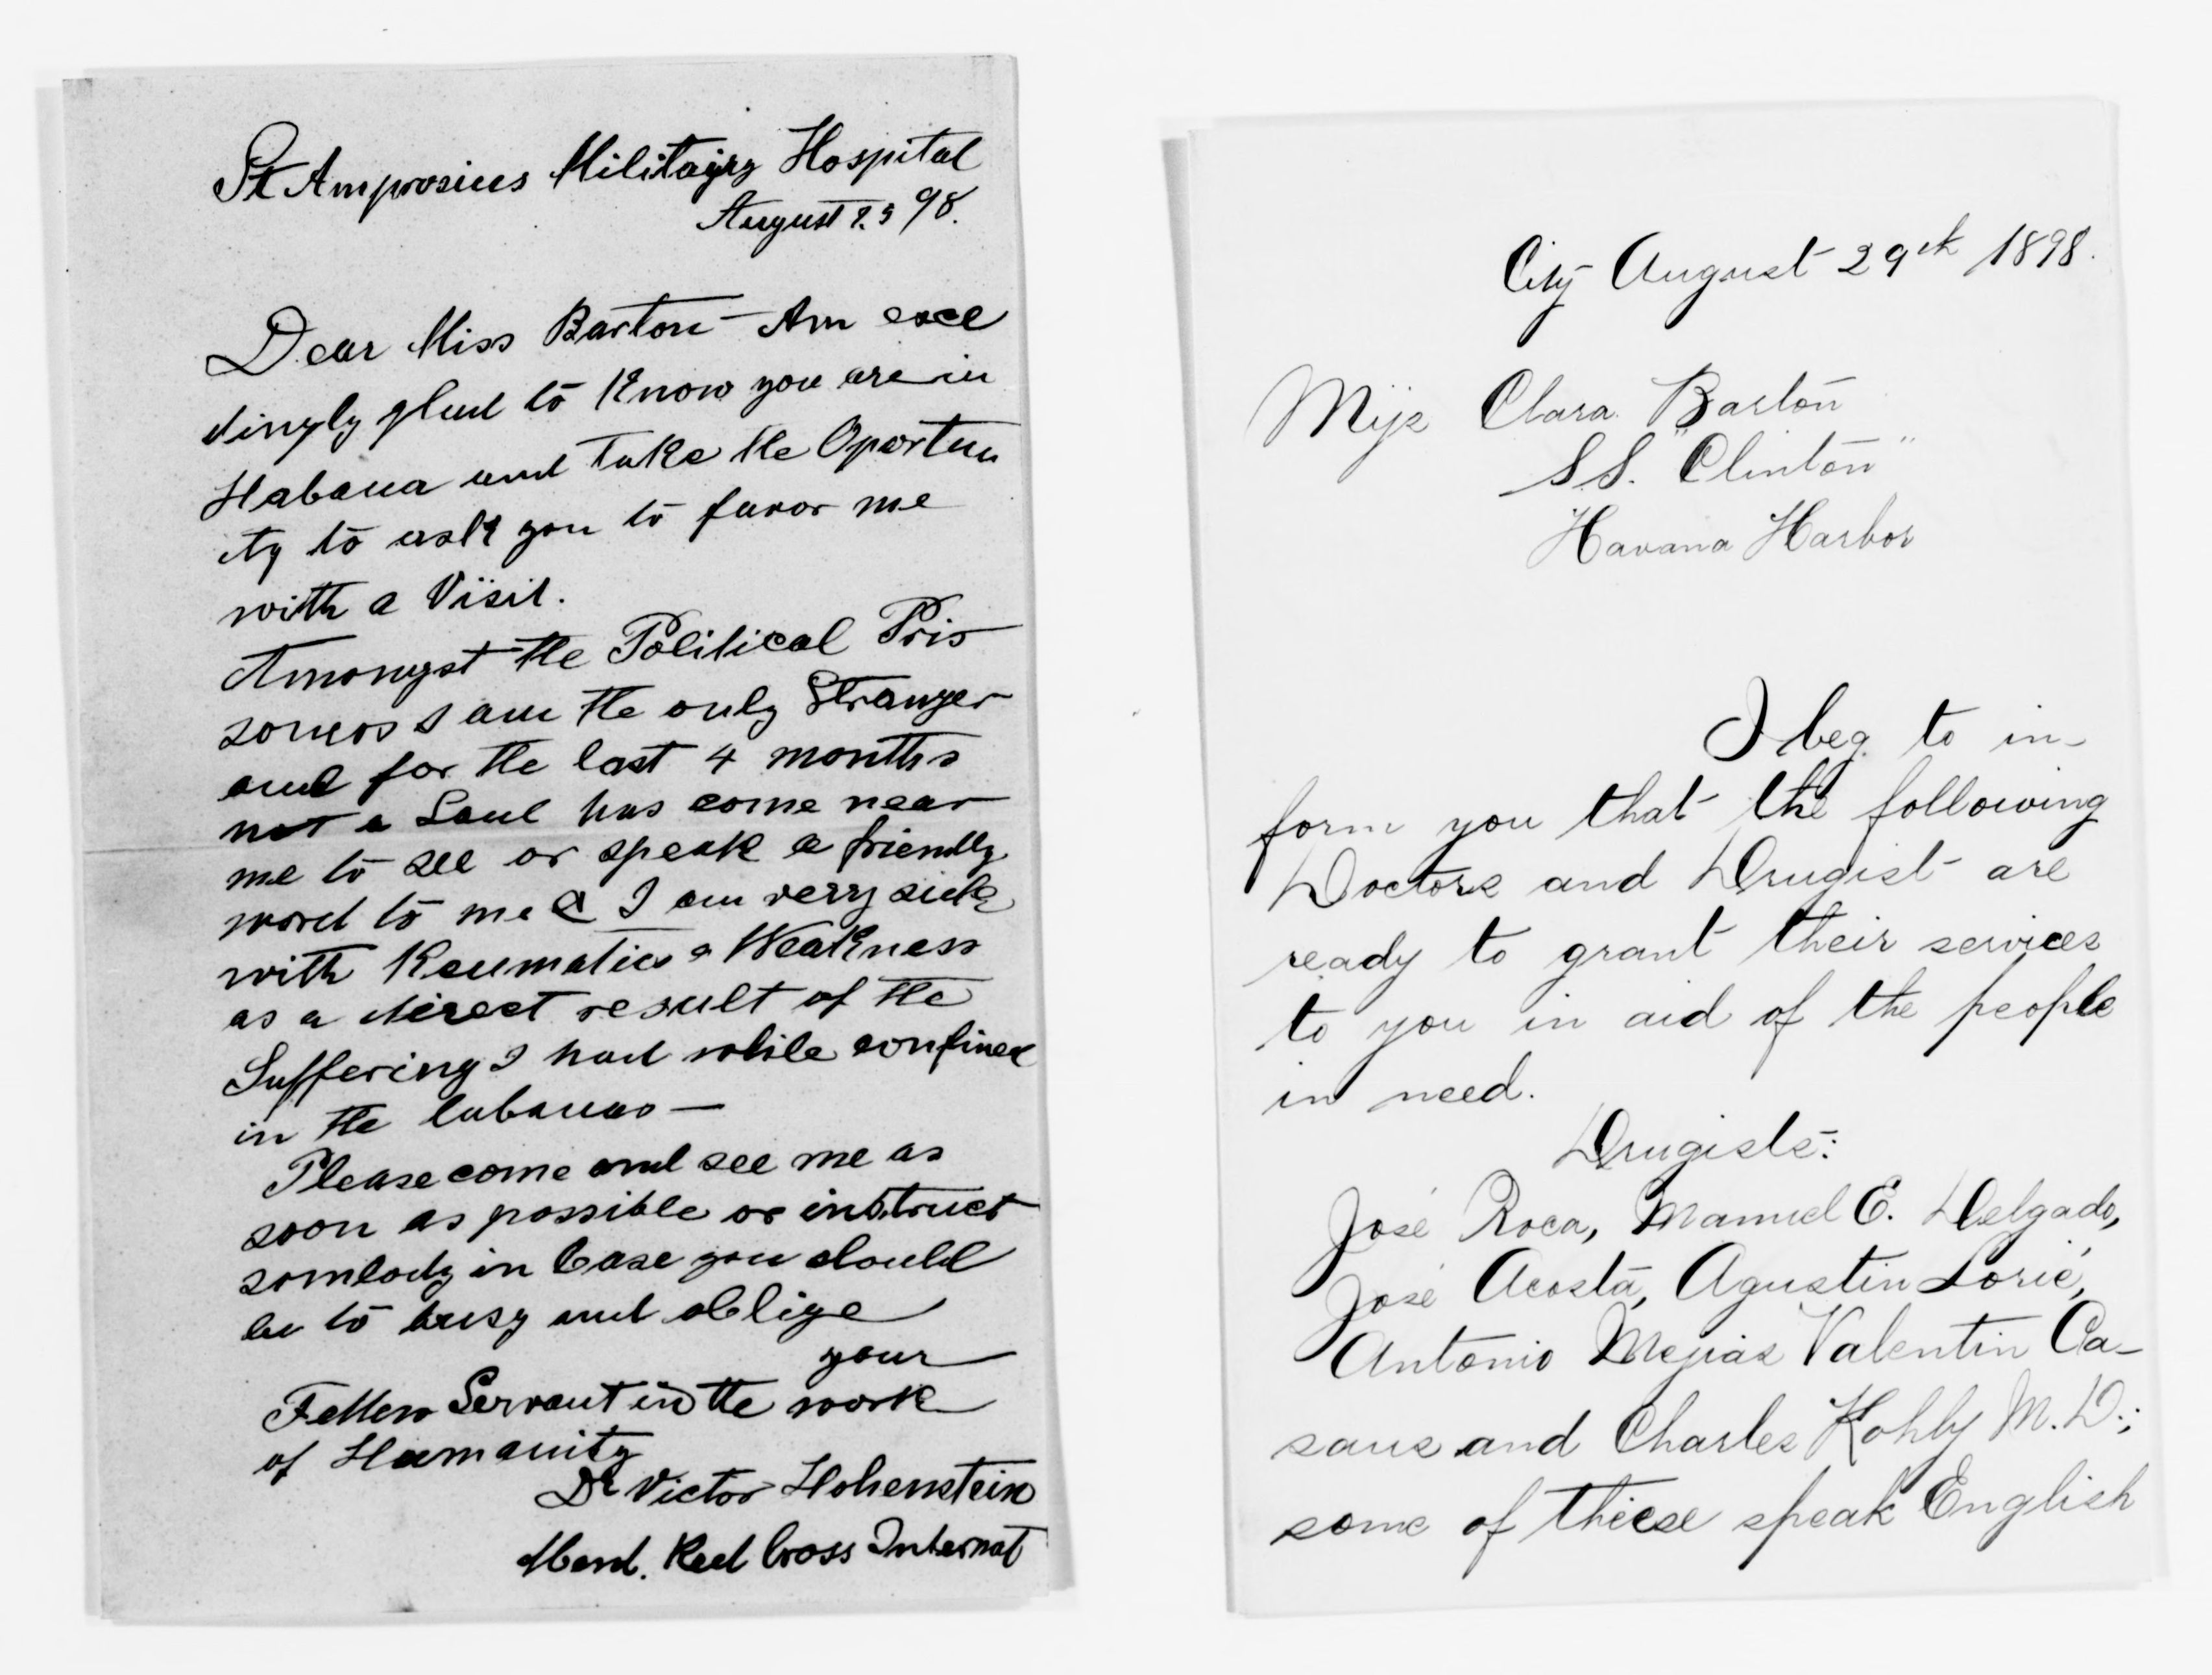 St Amprosius Militairy Hospital
August 2.9 98.
Dear Miss Barton – Am exce
dingly glad to Know you are in
Habana and take the Oportun
ity to ask you to favor me
with a Visit.
Amongst the Political Pris
soners I am the only Stranger
and for the last 4 months
not a Soul has come near
me to see or speak a friendly
word to me & I am very sick
with Reumatics & Weakness
as a direct result of the
Suffering I had while confined
in the Cabanas —
Please come and see me as
soon as possible or instruct
sombody in Case you should
be to busy and oblige
your
Fellow Servant in the work
of Humanity
Dr Victor Hohenstein
Memb. Red Cross Internat
City August 29th 1898.
Miss Clara Barton
S.S. "Clinton"
Havana Harbor
I beg to in-
form you that the following
Doctors and Drugist are
ready to grant their services
to you in aid of the people
in need.
Drugists:
José Roca, Manuel E. Delgado,
José Acosta, Agustin Lorié,
Antonio Mejias Valentin Ca-
saus and Charles Kohly M.D.;
some of theese speak English